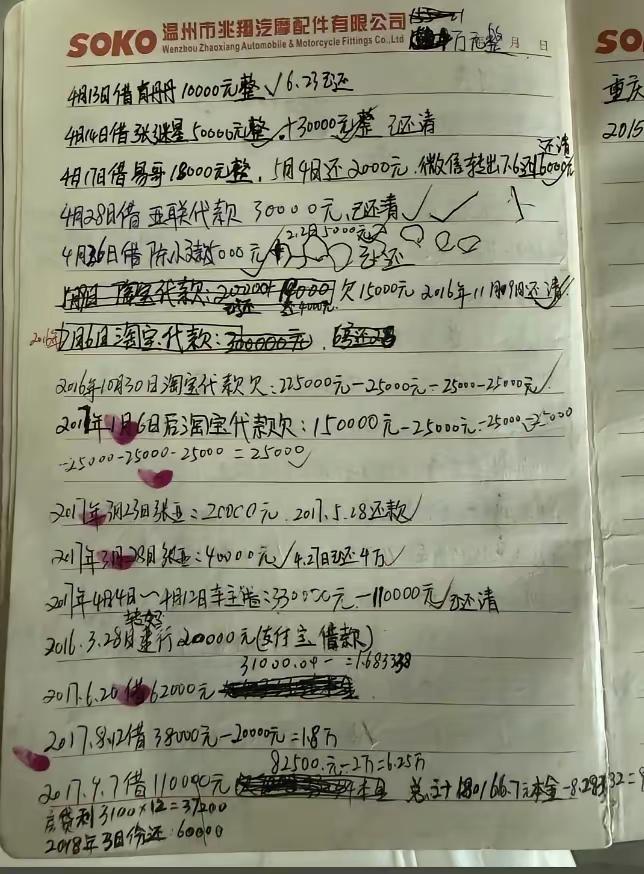 SOKO 温州市兆翔汽摩配件有限公司
Wenzhou Zhaoxiang Automobile & Motorcycle Fittings Co.,Ltd
万元整 月 日
4月13日借 10000元整√6.23已还
4月14日借张 50000元整√+30000元整 已还清
4月17日借易哥18000元整,5月4日还2000元.微信转出7.6还16000元 还清
4月28日借亚联代款30000元,已还清√
4月30日借陈 000元 2.12日5000元 已还
淘宝代款: 欠15000元 2016年11月09日还清√
2016年7月6日淘宝代款:300000元.
2016年10月30日淘宝代款欠:225000元-25000元-25000-25000元√
2017年1月6日后淘宝代款欠:150000元-25000元-25000-25000
-25000-25000-25000=25000√
2017年3月23日张亚:20000元.2017.5.28还款√
2017年3月28日张亚:40000元√4.27日已还4万√
2017年4月4日~4月12日车主 :330000元-110000元√已还清
2016.3.28日建行200000元(支付宝借款)
31000.04-=1.683338
2017.6.20借62000元
2017.8.12借38000元-20000元=1.8万
82500.元-2万=6.25万
2017.9.7借110000元 本金 总计180166.7元本金-8.29332=
房贷利3100×12=37200
2018年3日份还:60000
SO
重庆
2015